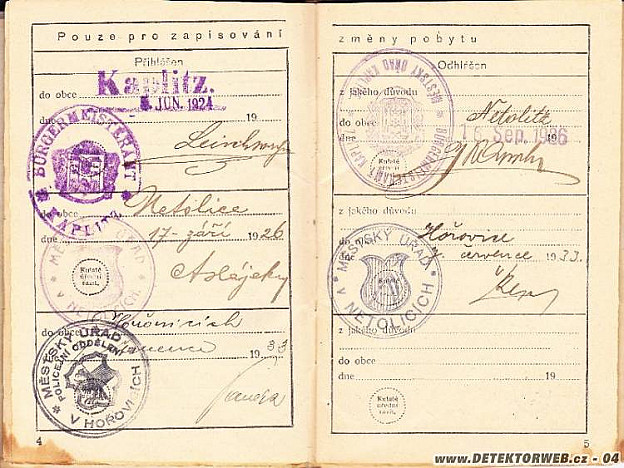 Pouze pro zapisování
Přihlášen
do obce Kaplitz.
5. JUN. 1924
dne 19
BÜRGERMEISTERAMT
KAPLITZ
do obce Netolice
dne 17. září 1926
MĚSTSKÝ ÚŘAD
V NETOLICÍCH
Kulaté úřední razít.
do obce Hořovicích
července 1933
MĚSTSKÝ ÚŘAD
POLICEJNÍ ODDĚLENÍ
V HOŘOVICÍCH
4
změny pobytu
Odhlášen
z jakého důvodu
MĚSTSKÝ ÚŘAD
BÜRGERMEISTERAMT
do obce Netolitz
dne 16. Sep. 1926
Kulaté úřední razít.
z jakého důvodu
Hořovice
července 1933.
MĚSTSKÝ ÚŘAD
V NETOLICÍCH
z jakého důvodu
do obce
dne 19
Kulaté úřední razít.
5
www.DETEKTORWEB.cz - 04